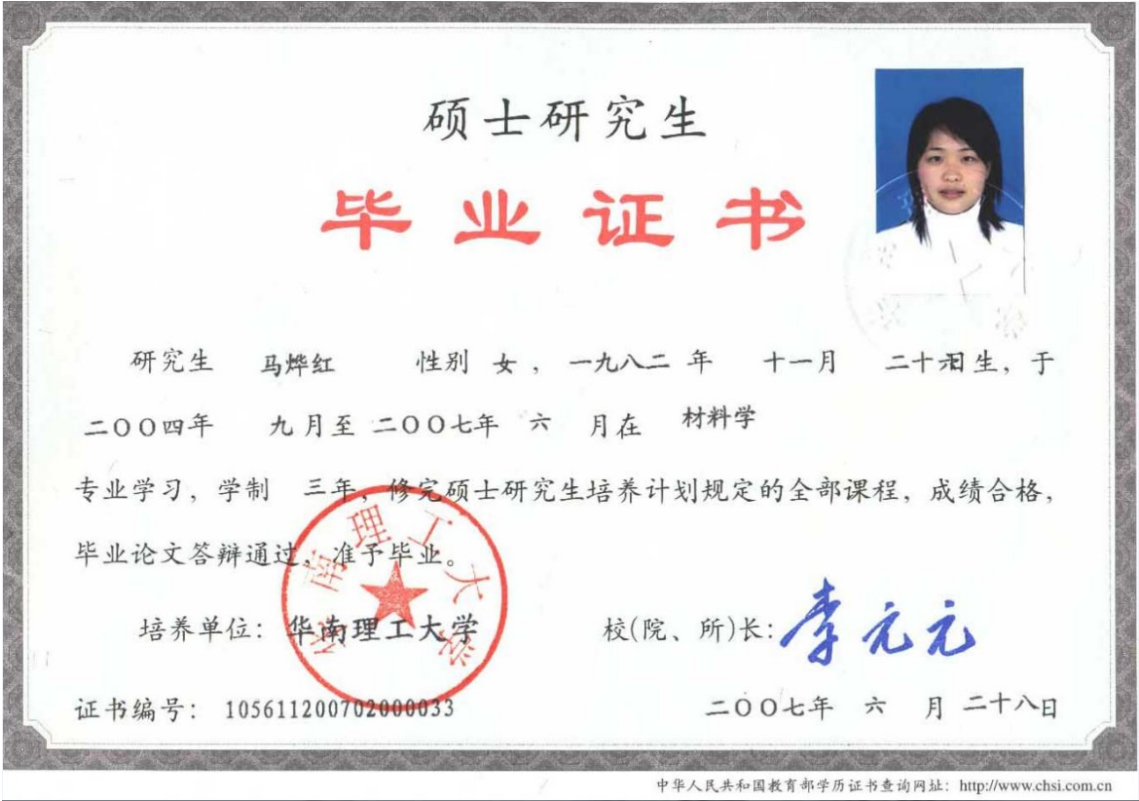 硕士研究生
毕业证书
研究生 马烨红 性别 女，一九八二 年 十一月 二十六日生，于
二〇〇四年 九 月至 二〇〇七年 六 月在 材料学
专业学习，学制 三年，修完硕士研究生培养计划规定的全部课程，成绩合格，
毕业论文答辩通过，准予毕业。
华南理工大学
培养单位：华南理工大学 校(院、所)长：李元元
证书编号：105611200702000033 二〇〇七年 六 月 二十八日
中华人民共和国教育部学历证书查询网址：http://www.chsi.com.cn